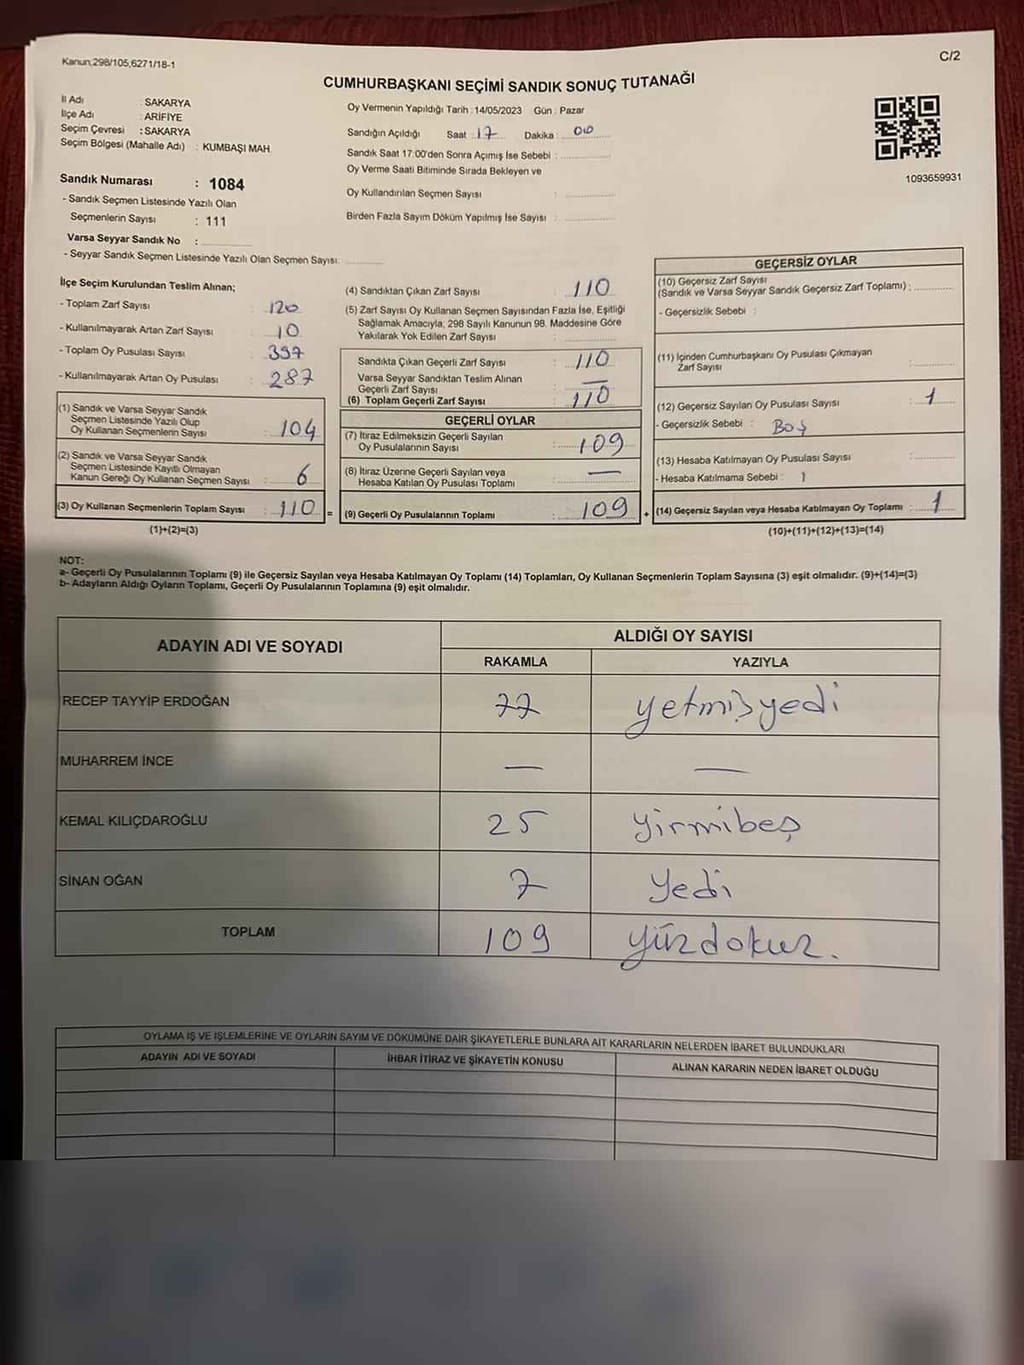 Kanun;298/105,6271/18-1
C/2
CUMHURBAŞKANI SEÇİMİ SANDIK SONUÇ TUTANAĞI
İl Adı : SAKARYA
İlçe Adı : ARİFİYE
Seçim Çevresi : SAKARYA
Seçim Bölgesi (Mahalle Adı) : KUMBAŞI MAH.
Sandık Numarası : 1084
- Sandık Seçmen Listesinde Yazılı Olan
Seçmenlerin Sayısı : 111
Varsa Seyyar Sandık No :
- Seyyar Sandık Seçmen Listesinde Yazılı Olan Seçmen Sayısı:
Oy Vermenin Yapıldığı Tarih : 14/05/2023 Gün : Pazar
Sandığın Açıldığı Saat : 17 Dakika : 00
Sandık Saat 17:00'den Sonra Açımış İse Sebebi :
Oy Verme Saati Bitiminde Sırada Bekleyen ve
Oy Kullandırılan Seçmen Sayısı :
Birden Fazla Sayım Döküm Yapılmış İse Sayısı :
1093659931
İlçe Seçim Kurulundan Teslim Alınan;
- Toplam Zarf Sayısı : 120
- Kullanılmayarak Artan Zarf Sayısı : 10
- Toplam Oy Pusulası Sayısı : 397
- Kullanılmayarak Artan Oy Pusulası : 287
(1) Sandık ve Varsa Seyyar Sandık
Seçmen Listesinde Yazılı Olup
Oy Kullanan Seçmenlerin Sayısı : 104
(2) Sandık ve Varsa Seyyar Sandık
Seçmen Listesinde Kayıtlı Olmayan
Kanun Gereği Oy Kullanan Seçmen Sayısı : 6
(3) Oy Kullanan Seçmenlerin Toplam Sayısı : 110 =
(1)+(2)=(3)
(4) Sandıktan Çıkan Zarf Sayısı : 110
(5) Zarf Sayısı Oy Kullanan Seçmen Sayısından Fazla İse, Eşitliği
Sağlamak Amacıyla; 298 Sayılı Kanunun 98. Maddesine Göre
Yakılarak Yok Edilen Zarf Sayısı :
Sandıkta Çıkan Geçerli Zarf Sayısı : 110
Varsa Seyyar Sandıktan Teslim Alınan
Geçerli Zarf Sayısı : —
(6) Toplam Geçerli Zarf Sayısı : 110
GEÇERLİ OYLAR
(7) İtiraz Edilmeksizin Geçerli Sayılan
Oy Pusulalarının Sayısı : 109
(8) İtiraz Üzerine Geçerli Sayılan veya
Hesaba Katılan Oy Pusulası Toplamı : —
(9) Geçerli Oy Pusulalarının Toplamı : 109 +
GEÇERSİZ OYLAR
(10) Geçersiz Zarf Sayısı
(Sandık ve Varsa Seyyar Sandık Geçersiz Zarf Toplamı) :
- Geçersizlik Sebebi :
(11) İçinden Cumhurbaşkanı Oy Pusulası Çıkmayan
Zarf Sayısı :
(12) Geçersiz Sayılan Oy Pusulası Sayısı : 1
- Geçersizlik Sebebi : Boş
(13) Hesaba Katılmayan Oy Pusulası Sayısı :
- Hesaba Katılmama Sebebi :
(14) Geçersiz Sayılan veya Hesaba Katılmayan Oy Toplamı : 1
(10)+(11)+(12)+(13)=(14)
NOT:
a- Geçerli Oy Pusulalarının Toplamı (9) ile Geçersiz Sayılan veya Hesaba Katılmayan Oy Toplamı (14) Toplamları, Oy Kullanan Seçmenlerin Toplam Sayısına (3) eşit olmalıdır. (9)+(14)=(3)
b- Adayların Aldığı Oyların Toplamı, Geçerli Oy Pusulalarının Toplamına (9) eşit olmalıdır.
ADAYIN ADI VE SOYADI ALDIĞI OY SAYISI
RAKAMLA YAZIYLA
RECEP TAYYİP ERDOĞAN 77 yetmişyedi
MUHARREM İNCE — —
KEMAL KILIÇDAROĞLU 25 yirmibeş
SİNAN OĞAN 7 yedi
TOPLAM 109 yüzdokuz.
OYLAMA İŞ VE İŞLEMLERİNE VE OYLARIN SAYIM VE DÖKÜMÜNE DAİR ŞİKAYETLERLE BUNLARA AİT KARARLARIN NELERDEN İBARET BULUNDUKLARI
ADAYIN ADI VE SOYADI İHBAR İTİRAZ VE ŞİKAYETİN KONUSU ALINAN KARARIN NEDEN İBARET OLDUĞU